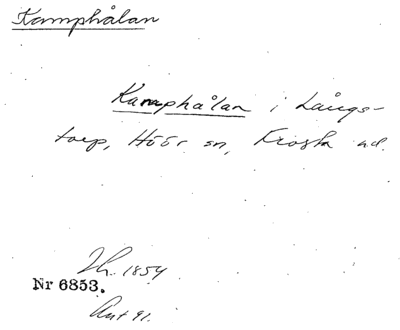 Kamphålan
Kamphålan i Långs-
torp, Höör sn, Frosta hd.
Th. 1854
Nr 6853.
Ant 91.